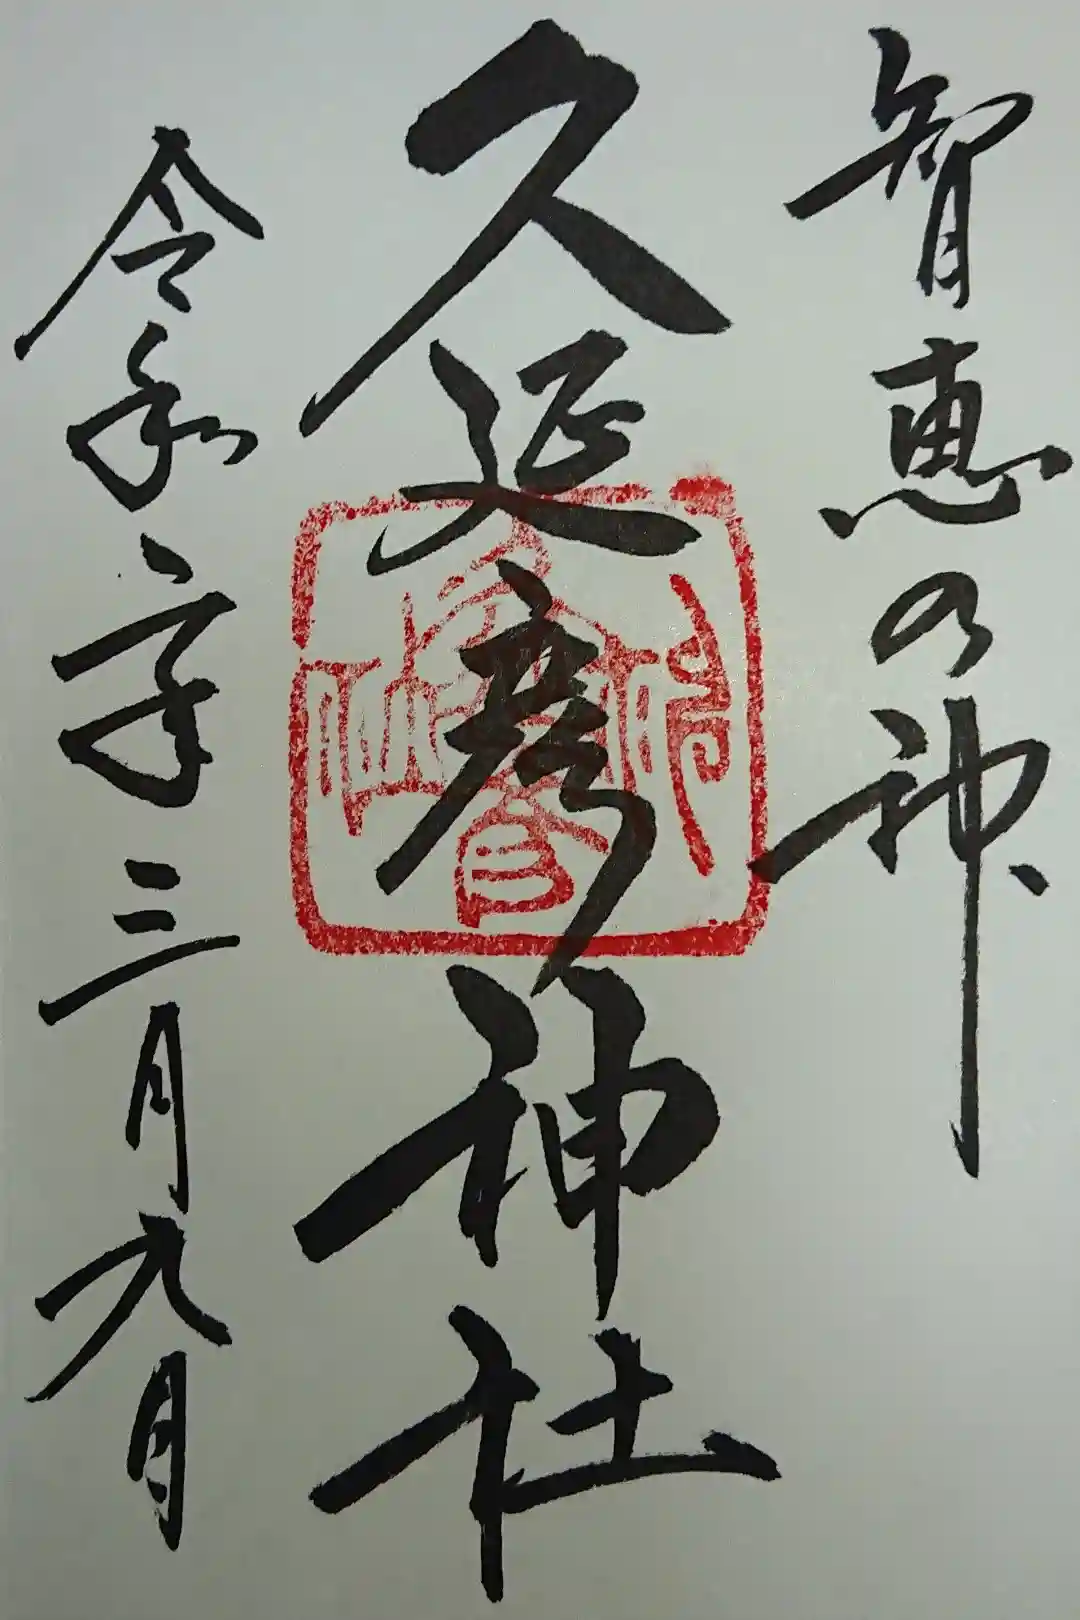 智恵の神
久延彦神社
令和年三月九日